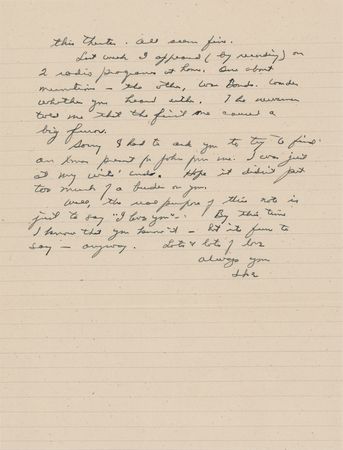 this theater. All seem fine.
Last week I appeared (by recording) on
2 radio programs at home. One about
munitions - the other, War Bonds. Wonder
whether you heard either. The newsmen
told me that the first one caused a
big furor.
Sorry I had to ask you to try to find
an Xmas present for John from me. I was just
at my wits' ends. Hope it didn't put
too much of a burden on you.
Well, the real purpose of this note is
just to say "I love you". By this time
I know that you know it - but it's fun to
say - anyway. Lots & lots of love
Always your
Ike